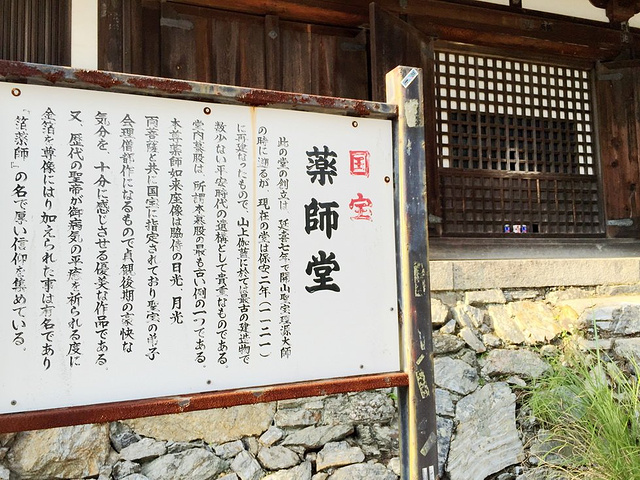 国宝
薬師堂
此の堂の創立は 延喜七年で開山聖宝理源大師
の時に遡るが 現在の堂は保安二年(一一二一)
に再建なったもので、山上伽藍に於ては最古の建造物で
数少ない平安時代の遺構として貴重なものである。
堂内蟇股は、所謂本蟇股の最も古い例の一つである。
本尊薬師如来座像は脇侍の日光、月光
両菩薩と共に国宝に指定されており聖宝の弟子
会理僧都作になるもので貞観後期の豪快な
気分を、十分に感じさせる優美な作品である。
又、歴代の聖帝が御病気の平癒を祈られる度に
金箔を尊像にはり加えられた事は有名であり
『箔薬師』の名で厚い信仰を集めている。